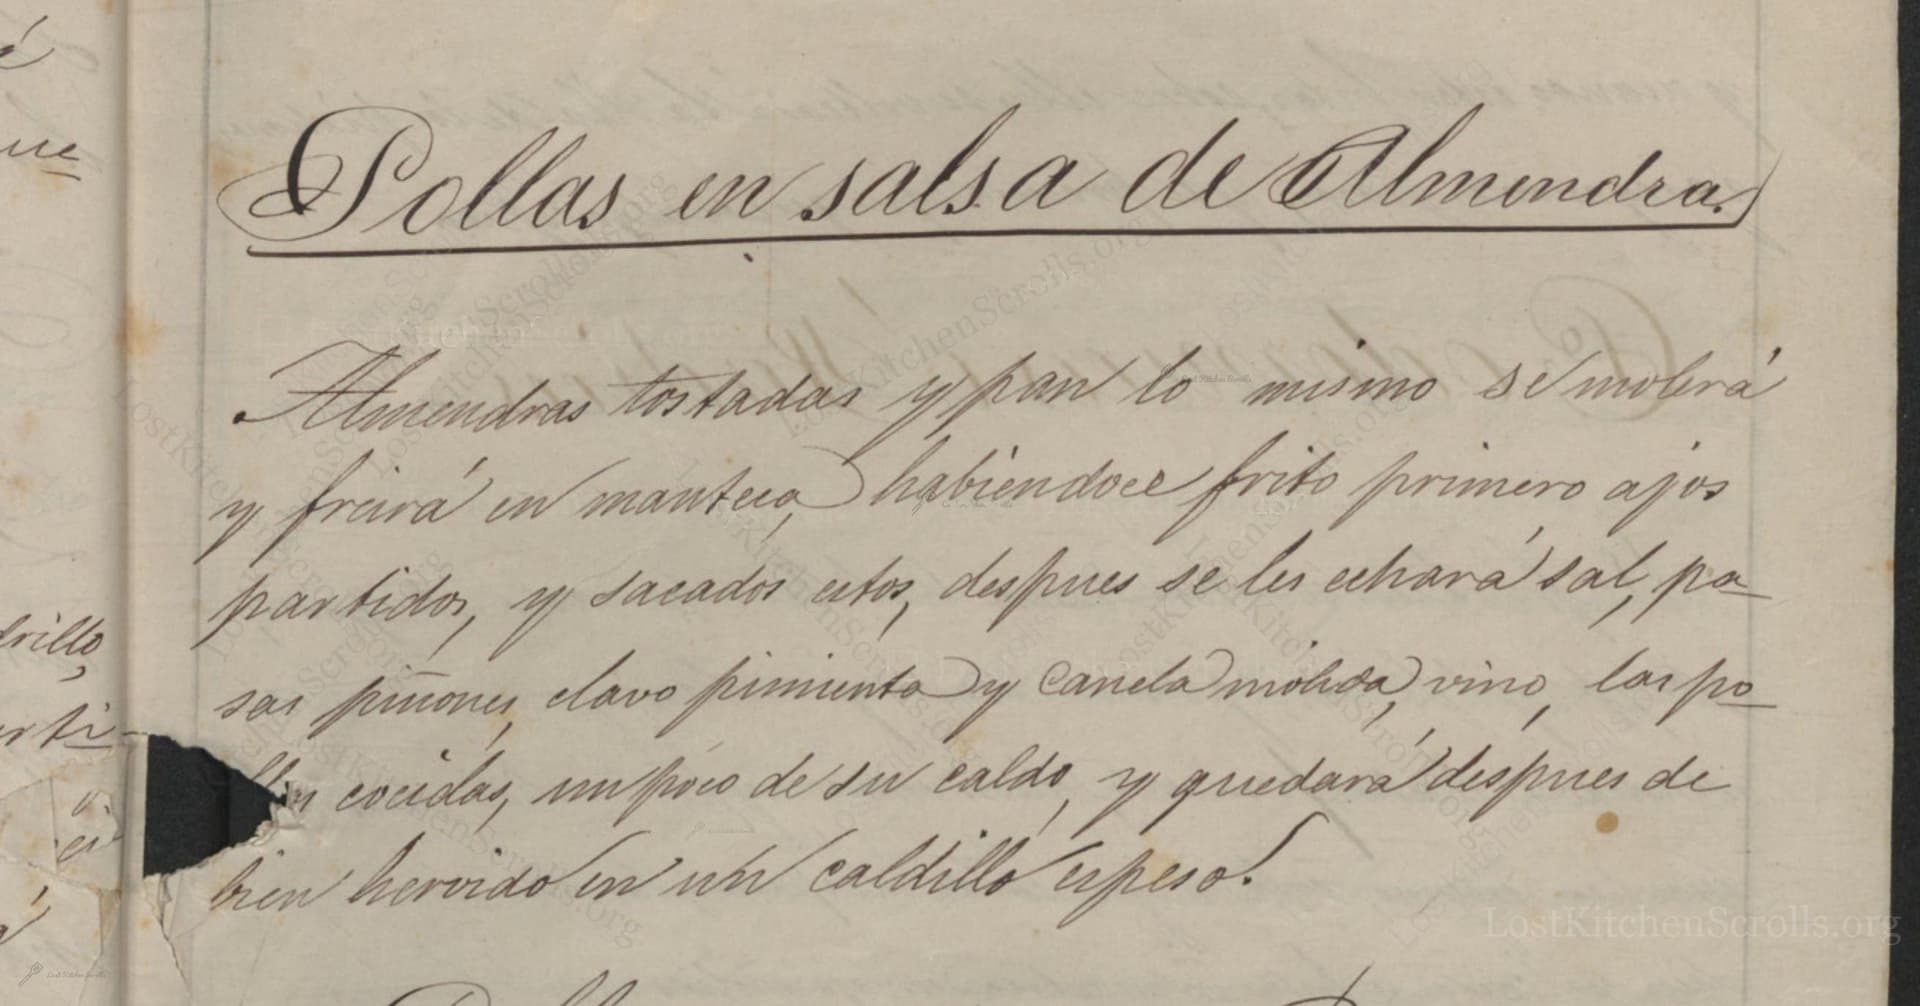 Pollas en salsa de Almendra.
Almendras tostadas y pan lo mismo se molerá
y freirá en manteca, habiendoce frito primero ajos
partidos, y sacados estos, despues se les echará sal, pa-
sas piñones, clavo pimienta y canela molida, vino, las po-
llas cocidas, un poco de su caldo, y quedará despues de
bien hervido en un caldillo espeso.
LostKitchenScrolls.org